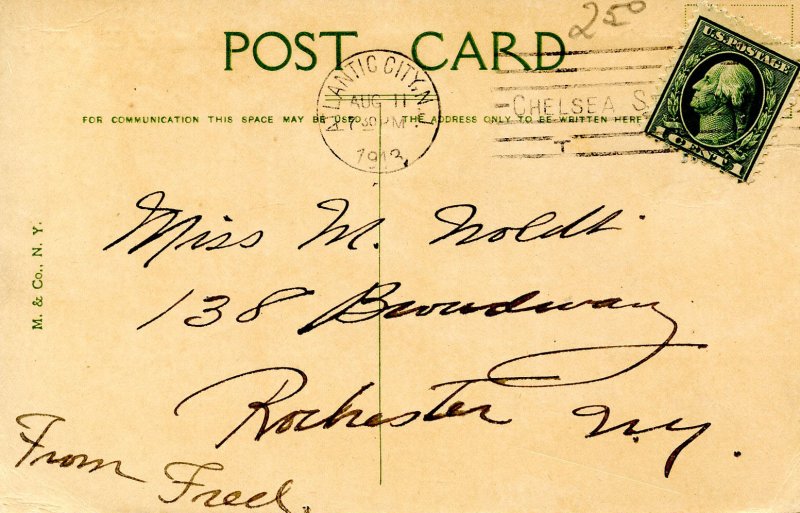 250
POST CARD
U.S. POSTAGE
ATLANTIC CITY, N.J.
AUG 11
7 30 PM
1913
CHELSEA S
T
1 CENT 1
FOR COMMUNICATION THIS SPACE MAY BE USED
THE ADDRESS ONLY TO BE WRITTEN HERE
M. & Co., N. Y.
Miss M. Noldt
138 Broadway
Rochester N.Y.
From Fred.